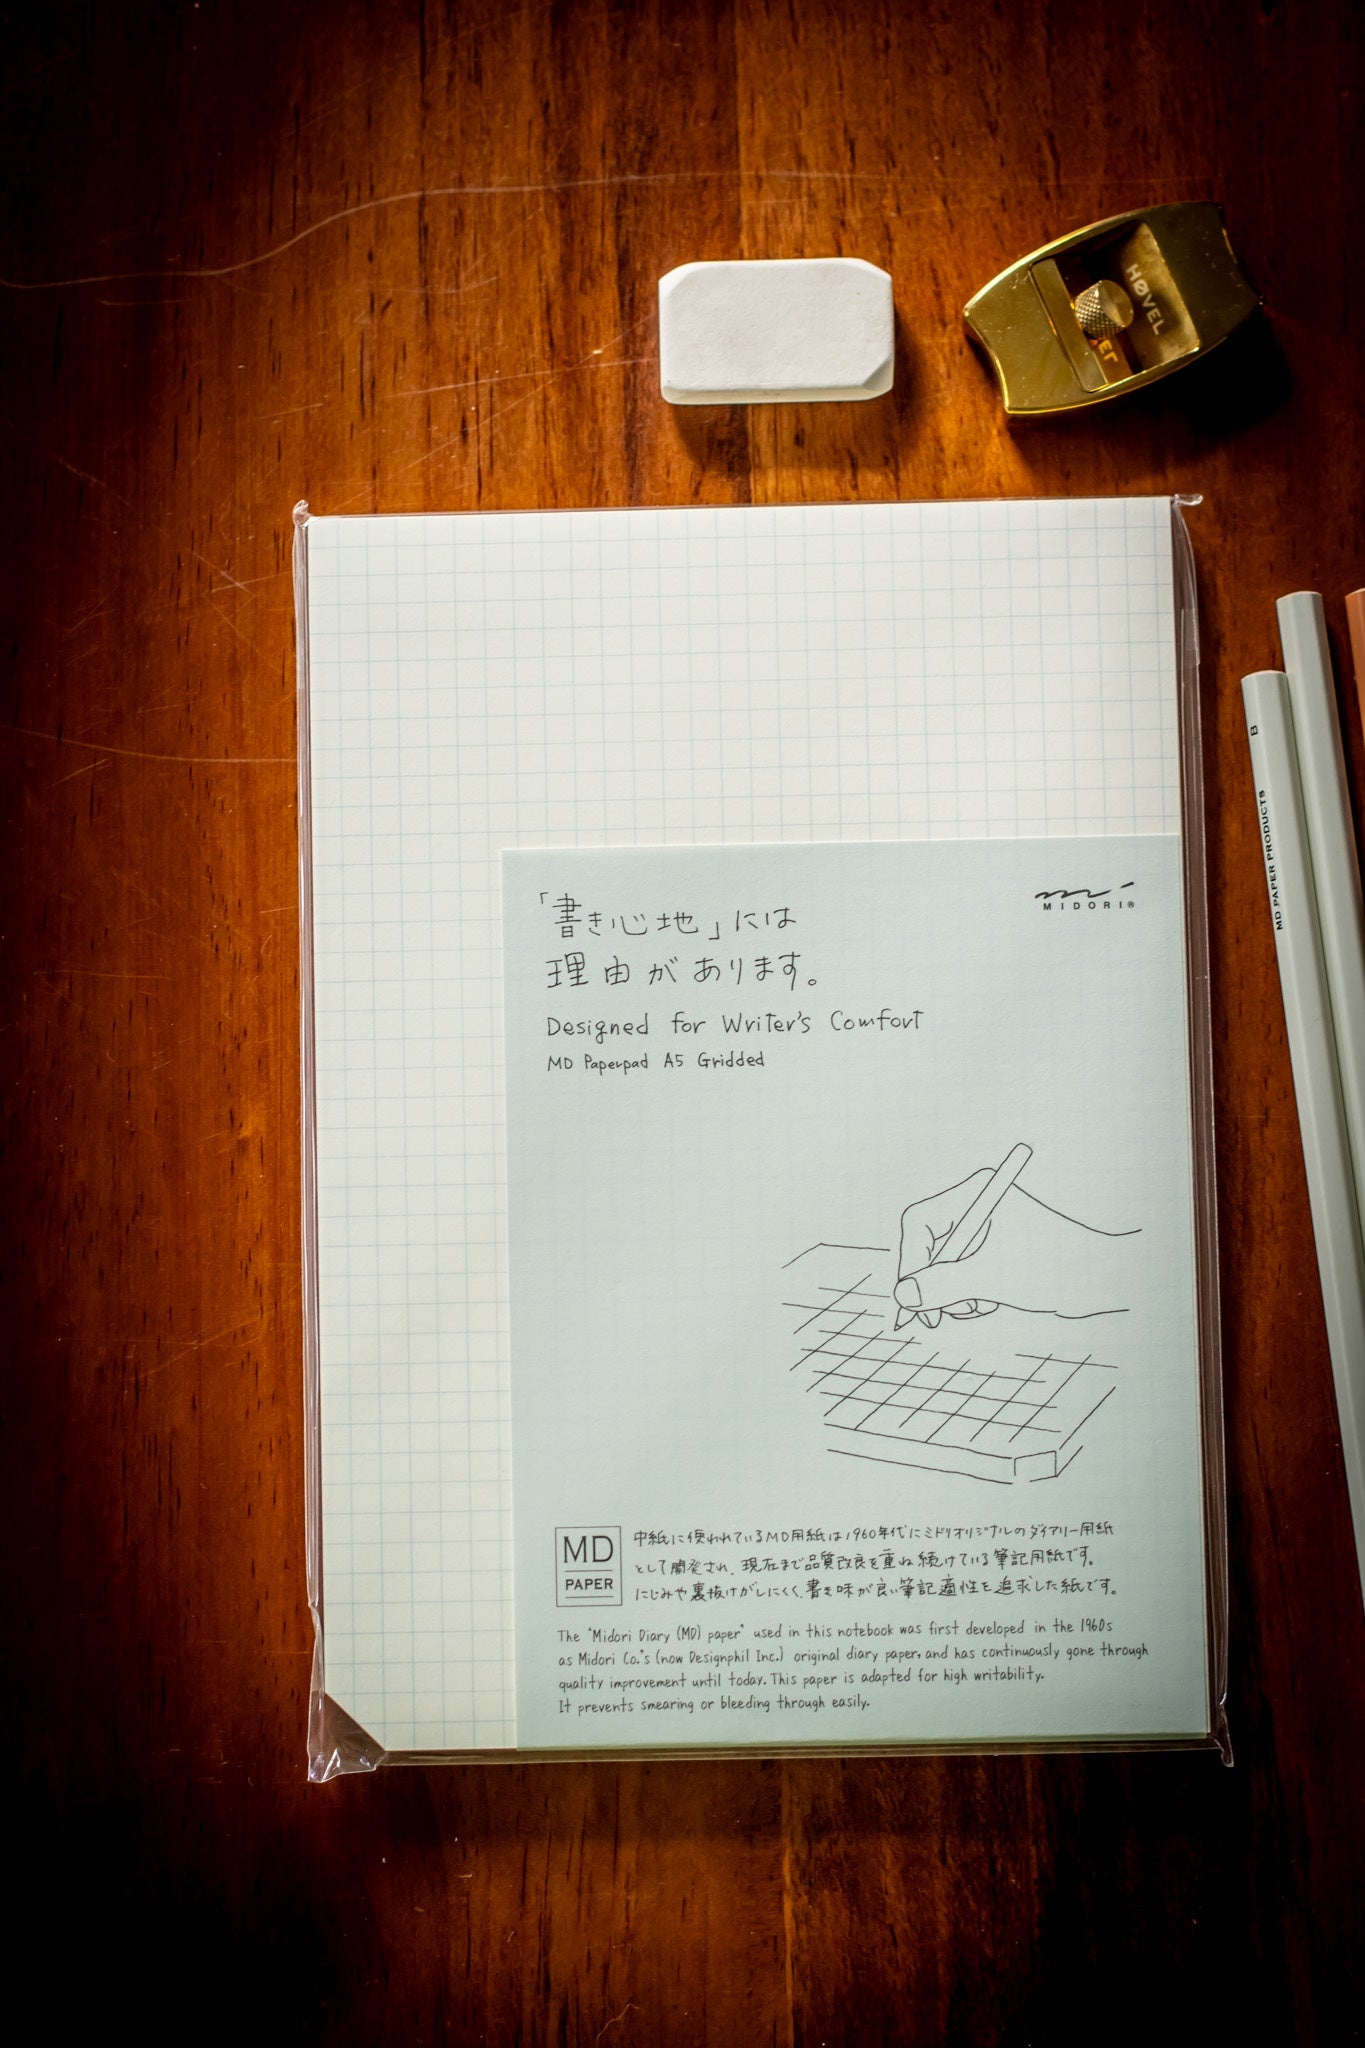 HØVEL
MIDORI®
「書き心地」には
理由があります。
Designed for Writer's Comfort
MD Paperpad A5 Gridded
B
MD PAPER PRODUCTS
MD
PAPER
中紙に使われているMD用紙は1960年代にミドリオリジナルのダイアリー用紙
として開発され、現在まで品質改良を重ね続けている筆記用紙です。
にじみや裏抜けがしにくく、書き味が良い筆記適性を追求した紙です。
The "Midori Diary (MD) paper" used in this notebook was first developed in the 1960s
as Midori Co.'s (now Designphil Inc.) original diary paper, and has continuously gone through
quality improvement until today. This paper is adapted for high writability.
It prevents smearing or bleeding through easily.